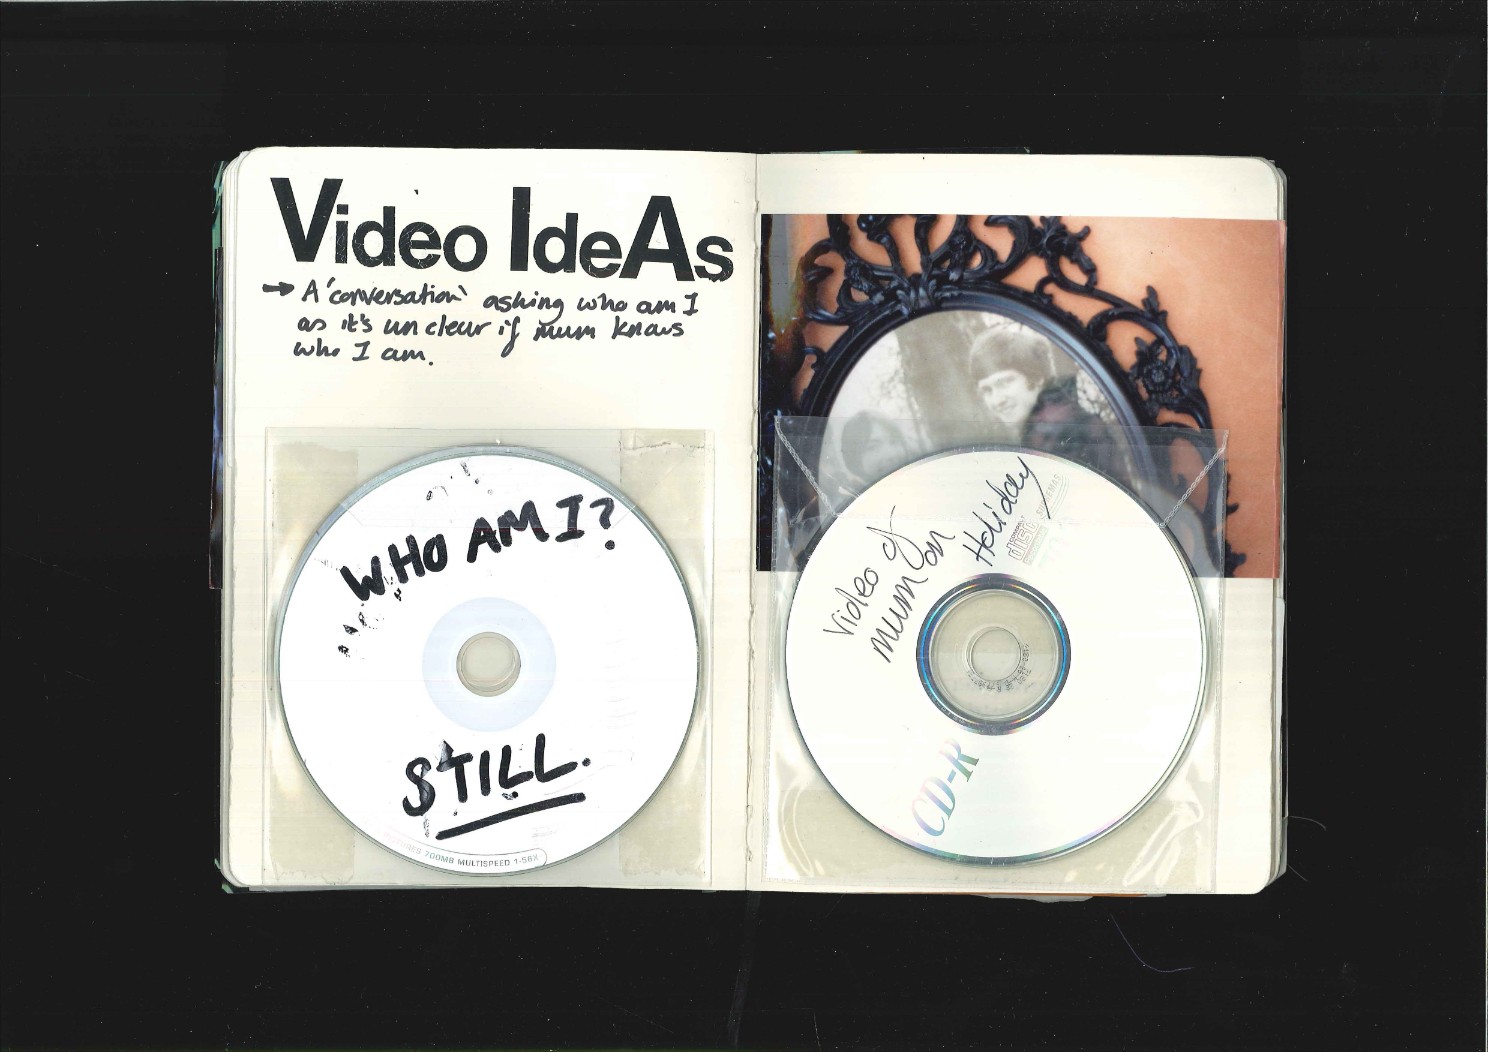 Video IdeAs
→ A 'conversation' asking who am I
as it's unclear if mum knows
who I am.
WHO AM I?
STILL.
700MB MULTISPEED 1-56X
Video of
mum on
Holiday
COMPACT
disc
CD-R